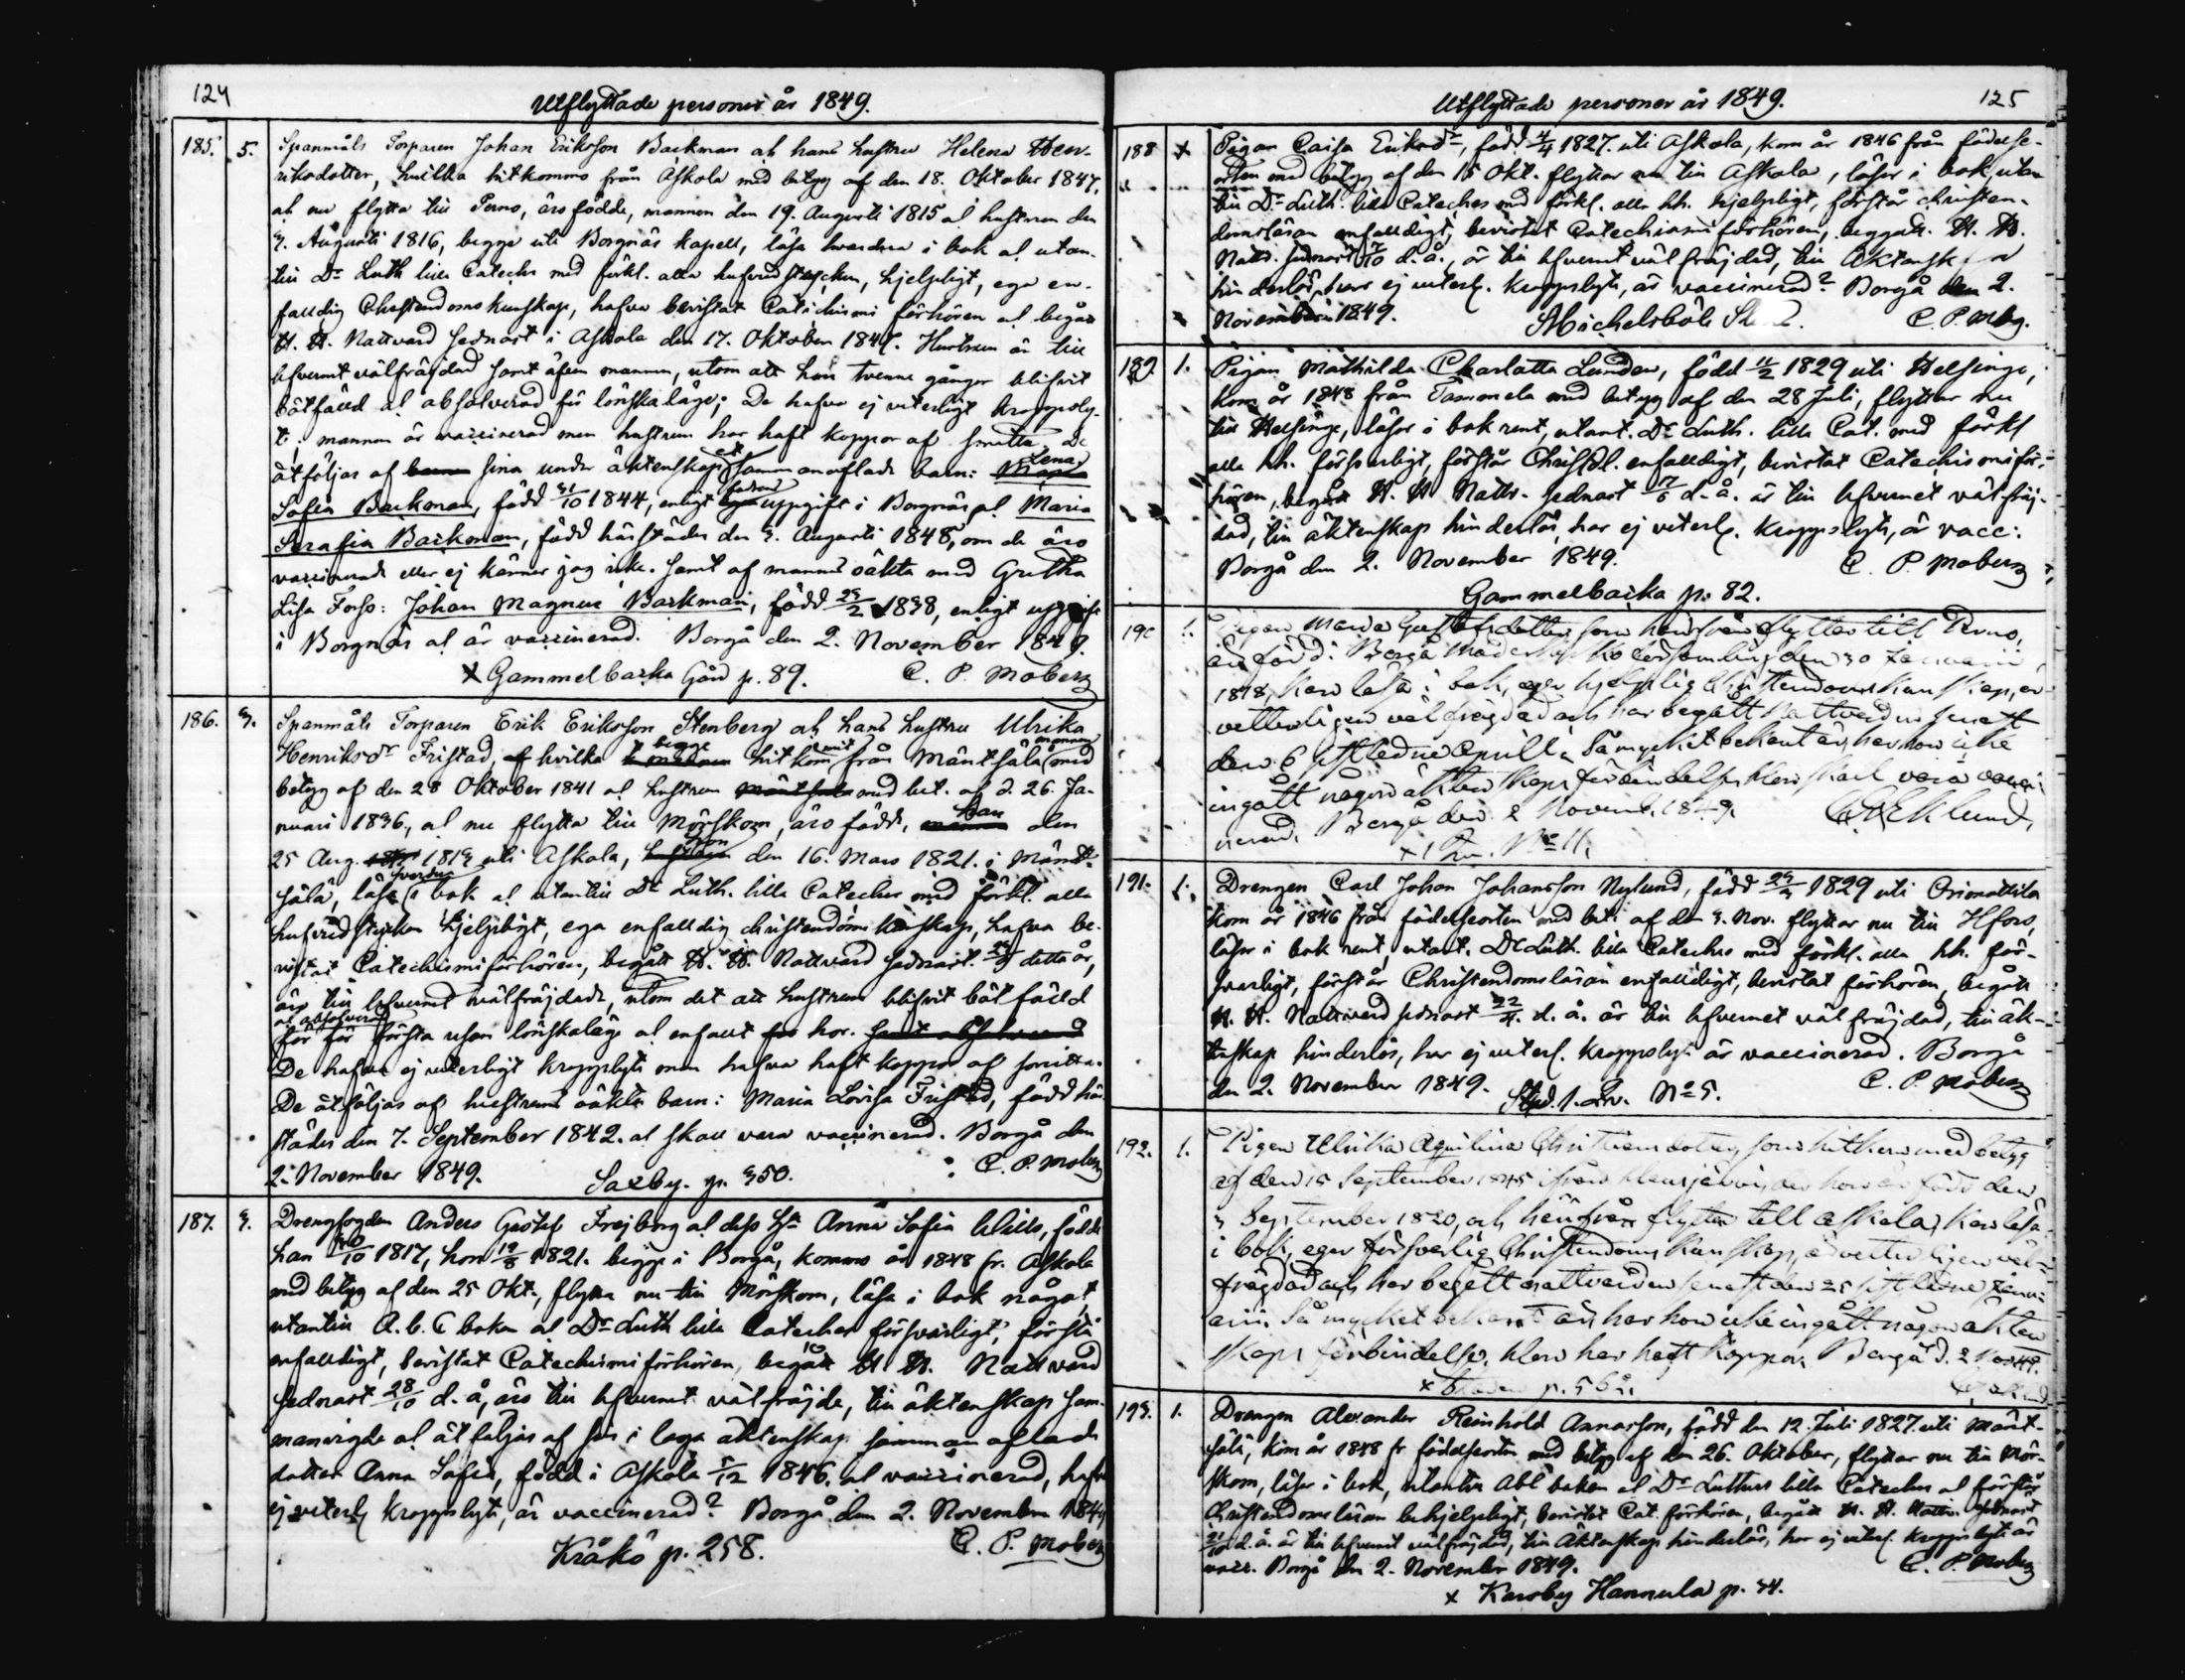 124
Utflyttade personer år 1849.
185. 5. Spanmåls Torparen Johan Eriksson Backman och hans hustru Helena Hen-
riksdotter, hvilka hitkommo från Askola med betyg af den 18. Oktober 1847,
och nu flytta till Perno, äro födde, mannen den 19. Augusti 1815 och hustrun den
3. Augusti 1816, begge uti Borgnäs kapell, läsa hvardera i bok och utan-
till Dr Luth lilla Cateches med förkl. alla hufvudstycken, hjelpligt, ega en-
falldig Christendomskunskap, hafva bevistat Catechismi förhören och begått
H. H. Nattvard sednast i Askola den 17. Oktober 1847. Hustrun är till
lefvernet välfräjdad samt äfven mannen, utom att han tvenne gånger blifvit
bötfälld och absolverad för lönskaläge; De hafva ej veterligt kroppsly-
te; mannen är vaccinerad men hustrun har haft koppor af smitta. De
åtföljas af sina under äktenskapet sammanaflade barn: Lena
Sofia Backman, född 31/10 1844, enligt fadrens uppgift i Borgnäs och Maria
Serafia Backman, född härstädes den 3. Augusti 1848, om de äro
vaccinerade eller ej känner jag icke. samt af mannens oäkta med Gretha
Lisa Forss: Johan Magnus Backman, född 25/2 1838, enligt uppgift
i Borgnäs och är vaccinerad. Borgå den 2. November 1849.
x Gammelbacka Gård p. 89. C. P. Moberg
186. 3. Spanmåls Torparen Erik Eriksson Stenberg och hans hustru Ulrika
Henriksdr Fristad, hvilka begge hitkommit från Mäntsälä mannen med
betyg af den 28 Oktober 1841 och hustrun med bet. af d. 26. Ja-
nuari 1836, och nu flytta till Mörskom, äro födde, han den
25 Aug. 1819 uti Askola, hon den 16. Mars 1821. i Mänt-
sälä, läsa hvardera i bok och utantill Dr Luth. lilla Cateches med förkl. alla
hufvudstycken hjelpligt, ega enfalldig christendoms kunskap, hafva be-
vistat Catechismi förhören, begått H. H. Nattvard sednast detta år,
äro till lefvernet välfräjdade, utom det att hustrun blifvit bötfälld
och absolverad för första resan lönskaläge och enfallt hor.
De hafva ej veterligt kroppslyte men hafva haft koppor af smitta.
De åtföljas af hustruns oäkta barn: Maria Lovisa Fristad, född här-
städes den 7. September 1842. och skall vara vaccinerad. Borgå den
2. November 1849. Saxby. p. 350. C. P. Moberg
187. 3. Drengfogden Anders Gustaf Frejborg och dess hu Anna Sofia Wills, födde
han 30/10 1817, hon 19/8 1821. begge i Borgå, kommo år 1848 fr. Askola
med betyg af den 25 Okt., flytta nu till Mörskom, läsa i bok något,
utantill A.b.C boken och Dr Luth lilla Cateches försvarligt, förstå
enfalldigt, bevistat Catechismi förhören, begått H. H. Nattvard
sednast 28/10 d. å, äro till lefvernet välfräjde, till äktenskap sam-
manvigde och åtföljas af sin i laga äktenskap samman aflade
dotter Anna Sofia, född i Askola 5/12 1846. och vaccinerad, hafva
ej veterl. kroppslyte, är vaccinerad? Borgå den 2. November 1849
Kråkö p. 258. C. P. Moberg
Utflyttade personer år 1849. 125
188 x Pigan Caisa Eriksdr, född 4/4 1827. uti Askola, kom år 1846 från födelse-
orten med betyg af den 15 Okt. flyttar nu till Askola, läser i bok, utan-
till Dr Luth. lilla Cateches med förkl. alla hh. hjelpligt, förstår christen-
domsläran enfalldigt, bevistat Catechismi förhören, begått H. H.
Nattv. sednast d. å., är till lefvernet välfräjdad, till Äktenskap
hinderlös, har ej veterl. kroppslyte, är vaccinerad? Borgå den 2.
November 1849. Michelsböle C. P. Mbg.
189. 1. Pigan Mathilda Charlotta Lunden, född 11/2 1829 uti Helsinge,
kom år 1848 från Tammela med betyg af den 28 Juli, flyttar nu
till Helsinge, läser i bok rent, utant. Dr Luth. lilla Cat. med förkl
alla hh. försvarligt, förstår Christdl. enfalldigt, bevistat Catechismi för-
hören, begått H. H Nattv. sednast 17/6 d. å. är till lefvernet välfräj-
dad, till äktenskap hinderlös, har ej veterl. kroppslyte, är vacc:
Borgå den 2. November 1849. C. P. Moberg
Gammelbacka p. 82.
190 1. Pigan Maria Gustafsdotter som härifrån flyttar till Perno,
är född i Borgå församling den 30 Januarii
18 8, kan läsa i bok, eger hjelplig Christendoms kunskap, är
vetterligen välfrägdad och har begått Nattvarden senast
den 6 sistledne Aprill. Så mycket bekant är, har hon icke
ingått någon äktenskaps förbindelse, skall vara vacci-
nerad. Borgå den 2 Novemb. 1849. Eklund,
x 1 No 11.
191. 1. Drengen Carl Johan Johansson Nylund, född 1829 uti Orimattila
kom år 1846 från födelseorten med bet. af den 3. Nov. flyttar nu till Hfors,
läser i bok rent, utant. Dr Luth. lilla Cateches med förkl. alla hh. för-
svarligt, förstår Christendomsläran enfalldigt, bevistat förhören, begått
H. H. Nattvard sednast 22/4. d. å. är till lefvernet välfräjdad, till äk-
tenskap hinderlös, har ej veterl. kroppslyte är vaccinerad. Borgå
den 2. November 1849. Stad. 1. No 5. C. P. Moberg
192. 1. Pigan Ulrika Aqvilina Christiansdotter, som hitkom med betyg
af den 15 September 1845 ifrån der hon är född den
3 September 1820, och härifrån flyttar till Askola, kan läsa
i bok, eger försvarlig Christendoms kunskap, är vetterligen väl-
frägdad och har begått nattvarden senast den 25 sistledne Janu-
arii. Så mycket bekant är, har hon icke ingått någon äkten-
skaps förbindelse. har haft koppor. Borgå d. 2 Nov 49.
193. 1. Drengen Alexander Reinhold Annasson, född den 12. Juli 1827. uti Mänt-
sälä, kom år 1848 fr födelseorten med betyg af den 26. Oktober, flyttar nu till Mör-
skom, läser i bok, utantill Abc boken och Dr Luthers lilla Cateches och förstår
Christendomsläran behjelpligt, bevistat Cat. förhören, begått H. H. Nattv. sednast
21/10 d. å. är till lefvernet välfräjdad, till Äktenskap hinderlös, har ej veterl. kroppslyte är
vacc. Borgå den 2. November 1849. C. P. Moberg
x Karsby Hannula p. 34.